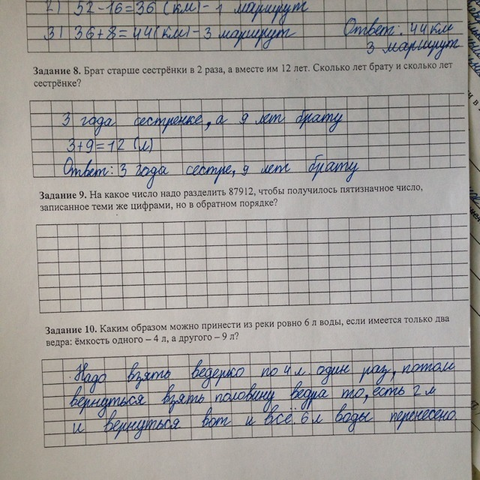 2) 52-16=36 (км)-1 маршрут
3) 36+8=44(км)-3 маршрут Ответ: 44 км
3 маршрут
Задание 8. Брат старше сестрёнки в 2 раза, а вместе им 12 лет. Сколько лет брату и сколько лет
сестрёнке?
3 года сестренке, а 9 лет брату
3+9=12 (л)
Ответ: 3 года сестре, 9 лет брату
Задание 9. На какое число надо разделить 87912, чтобы получилось пятизначное число,
записанное теми же цифрами, но в обратном порядке?
Задание 10. Каким образом можно принести из реки ровно 6 л воды, если имеется только два
ведра: ёмкость одного – 4 л, а другого – 9 л?
Надо взять ведерко по 4 л один раз, потом
вернуться взять половину ведра то, есть 2 л
и вернуться вот и всё 6 л воды перенесено